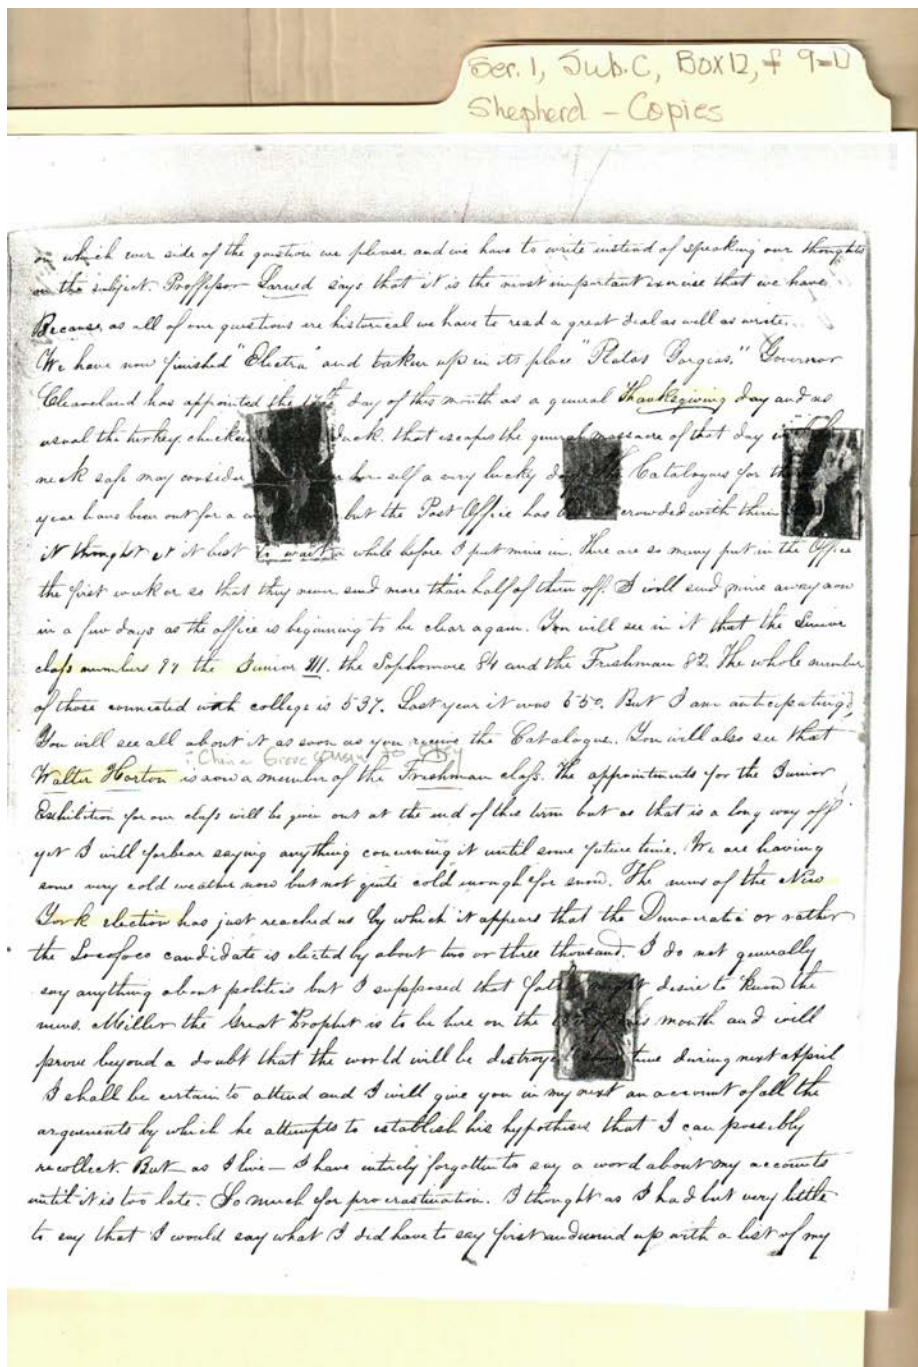 Ser. 1, Sub. C, Box 12, f 9-D
Shepherd - Copies
on which ever side of the question we please and we have to write instead of speaking our thoughts
on the subject. Proffessor Larned says that it is the most important exercise that we have
Because, as all of our questions are historical we have to read a great deal as well as write.
We have now finished "Electra" and taken up in its place "Platos Gorgias." Governor
Cleaveland has appointed the 17th day of this month as a general Thanksgiving day and as
usual the turkey, chicken duck. that escapes the general massacre of that day
neck safe may consider herself a very lucky Catalogues for
year have been out for a but the Post Office has crowded with them
it thought it best to wait a while before I put mine in. There are so many put in the Office
the first week or so that they never send more than half of them off. I will send mine away now
in a few days as the office is beginning to be clear again. You will see in it that the Senior
class numbers 99 the Junior 111. the Sophomore 84 and the Freshman 82. The whole number
of those connected with college is 537. Last year it was 550. But I am anticipating,
You will see all about it as soon as you receive the Catalogue. You will also see that
China Grove cousin to
Walter Horton is now a member of the Freshman class. The appointments for the Junior
Exhibition for our class will be given out at the end of this term but as that is a long way off
yet I will forbear saying anything concerning it until some future time. We are having
some very cold weather now but not quite cold enough for snow. The news of the New
York election has just reached us by which it appears that the Democratic or rather
the Locofoco candidate is elected by about two or three thousand. I do not generally
say anything about politics but I supposed that might desire to know the
news. Miller the Great Prophet is to be here on the month and will
prove beyond a doubt that the world will be destroyed time during next April
I shall be certain to attend and I will give you in my next an account of all the
arguments by which he attempts to establish his hypothesis that I can possibly
recollect. But as I live - I have entirely forgotten to say a word about my accounts
until it is too late. So much for procrastination. I thought as I had but very little
to say that I would say what I did have to say first and wind up with a list of my